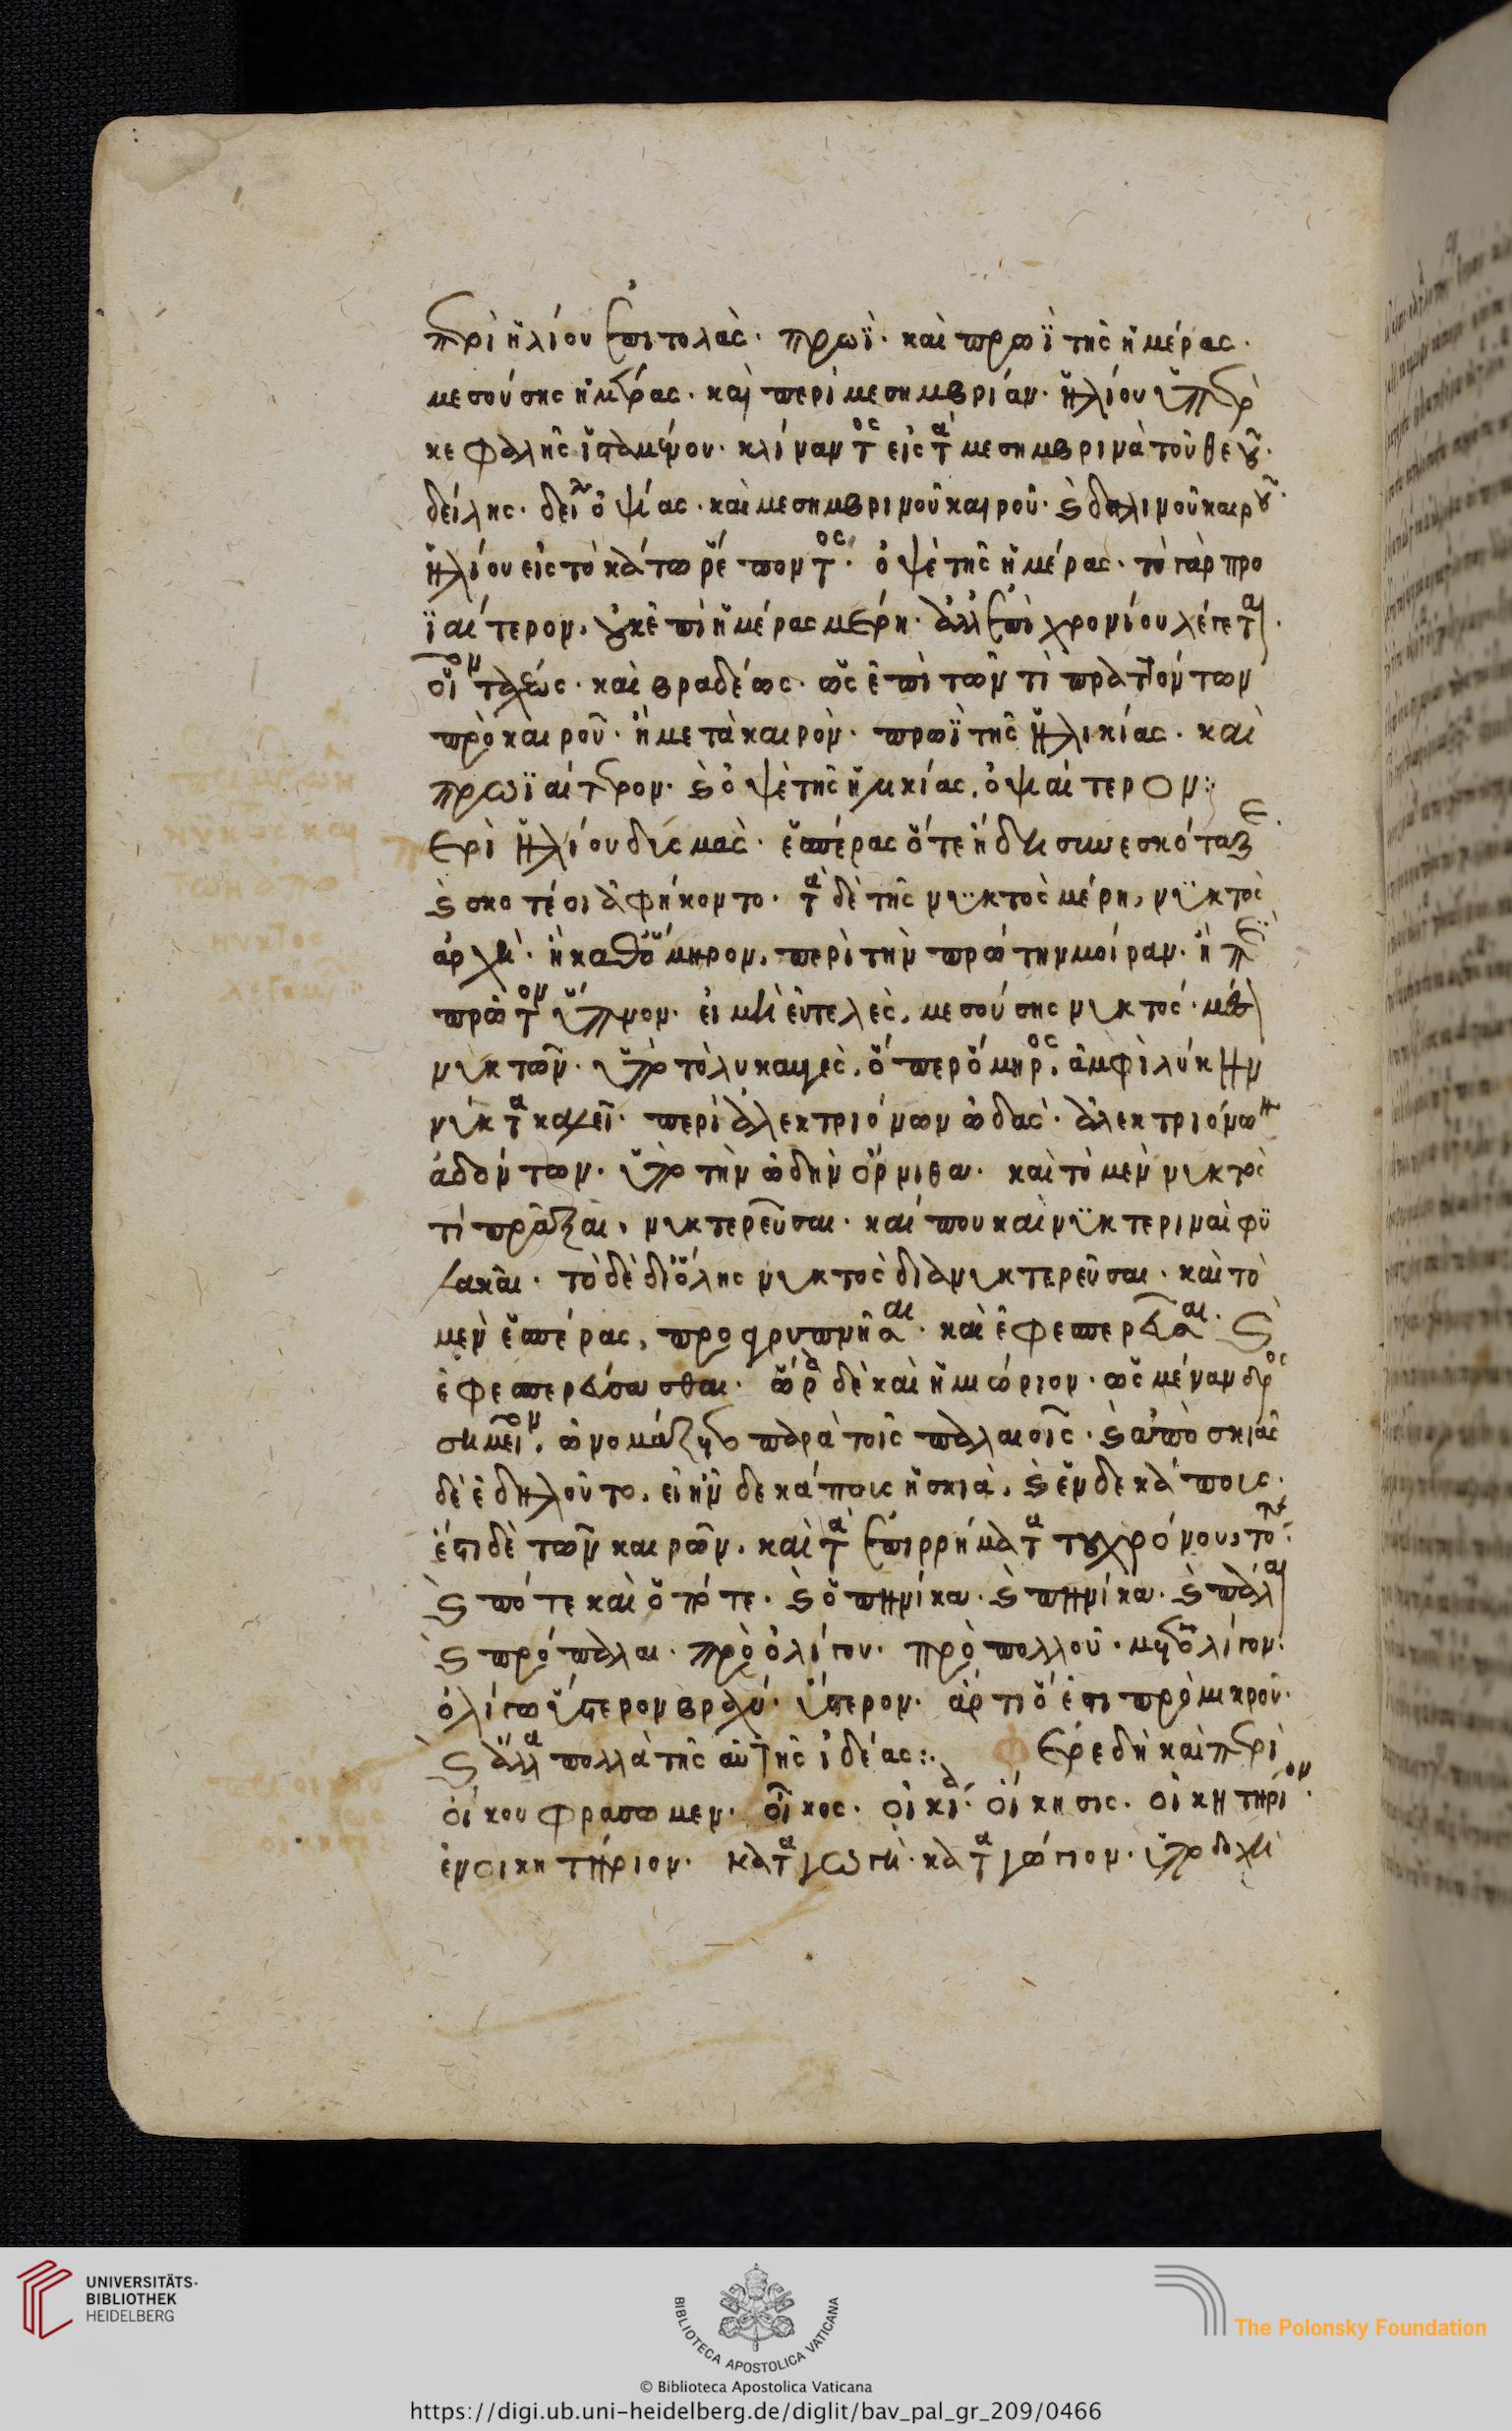 περὶ ἡλίου ἐπιτολάς· πρωΐ· καὶ πρωῒ τῆς ἡμέρας·
μεσούσης ἡμέρας· καὶ περὶ μεσημβρίαν· ἡλίου ὑπὲρ
κεφαλῆς ἱσταμένου· κλίναντος εἰς τὰ μεσημβρινὰ τοῦ θεοῦ·
δείλης· δείλης ὀψίας· καὶ μεσημβρινοῦ καιροῦ· καὶ δειλινοῦ καιροῦ·
ἡλίου εἰς τὸ κάτω ῥέποντος· ὀψὲ τῆς ἡμέρας· τὸ γὰρ πρω
ϊαίτερον, οὐκ ἐπὶ ἡμέρας μέρη· ἀλλ' ἐπὶ χρονίου λέγεται·
οἷον ταχέως· καὶ βραδέως· ὡς ἐπὶ τῶν τὶ πραττόντων
πρὸ καιροῦ· ἢ μετὰ καιρὸν· πρωῒ τῆς ἡλικίας· καὶ
πρωϊαίτερον· καὶ ὀψὲ τῆς ἡλικίας, ὀψιαίτερον:
ερὶ ἡλίου δυσμάς· ἑσπέρας ὅτε ἤδη συνεσκόταζε·
καὶ σκοτέσι ἀφήκοντο· τὰ δὲ τῆς νυκτὸς μέρη, νυκτὸς
ἀρχή· ἢ καθ' ὅμηρον, περὶ τὴν πρώτην μοίραν· ἢ περὶ
πρῶτον ὕπνον· εἰ μὴ εὐτελὲς, μεσούσης νυκτός· μέσων
νυκτῶν· ὑπὸ τὸ λυκαυγὲς, ὅπερ ὅμηρος, ἀμφιλύκην
νύκτα καλεῖ· περὶ ἀλεκτρυόνων ᾠδάς· ἀλεκτρυόνων
ἀδόντων· ὑπὸ τὴν ᾠδὴν ὄρνιθα· καὶ τὸ μὲν νυκτὸς
τὶ πρᾶξαι, νυκτερεῦσαι· καί που καὶ νυκτεριναὶ φυ
λακαί· τὸ δὲ δι' ὅλης νυκτὸς διανυκτερεῦσαι· καὶ τὸ
μὲν ἑσπέρας,
ὥρα δὲ καὶ ἡμιώριον· ὡς μένανδρος
σημεῖον, ὠνομάζετο παρὰ τοῖς παλαιοῖς· καὶ ἀπὸ σκιᾶς
δὲ ἐδηλοῦτο, εἰ ἦν δεκάπους ἡ σκιὰ, καὶ ἑνδεκάπους·
ἔστι δὲ τῶν καιρῶν, καὶ τὰ ἐπιρρήματα τοῦ χρόνου, τότε·
καὶ πότε καὶ ὁπότε· καὶ ὁπηνίκα· καὶ πηνίκα· καὶ πάλαι
καὶ πρόπαλαι· πρὸ ὀλίγου· πρὸ πολλοῦ· μετ' ὀλίγον·
ὀλίγω ὕστερον βραχύ· ὕστερον· ἄρτι ὅ ἐστι πρὸ μικροῦ·
καὶ ἄλλα πολλὰ τῆς αὐτῆς ἰδέας:. Φέρε δὴ καὶ περὶ
οἴκου φράσωμεν· οἶκος· οἰκία· οἴκησις· οἰκητήριον·
ἐνοικητήριον· καταγωγή· καταγώγιον· ὑποδοχὴ
UNIVERSITÄTS-
BIBLIOTHEK
HEIDELBERG
BIBLIOTECA APOSTOLICA VATICANA
The Polonsky Foundation
© Biblioteca Apostolica Vaticana
https://digi.ub.uni-heidelberg.de/diglit/bav_pal_gr_209/0466